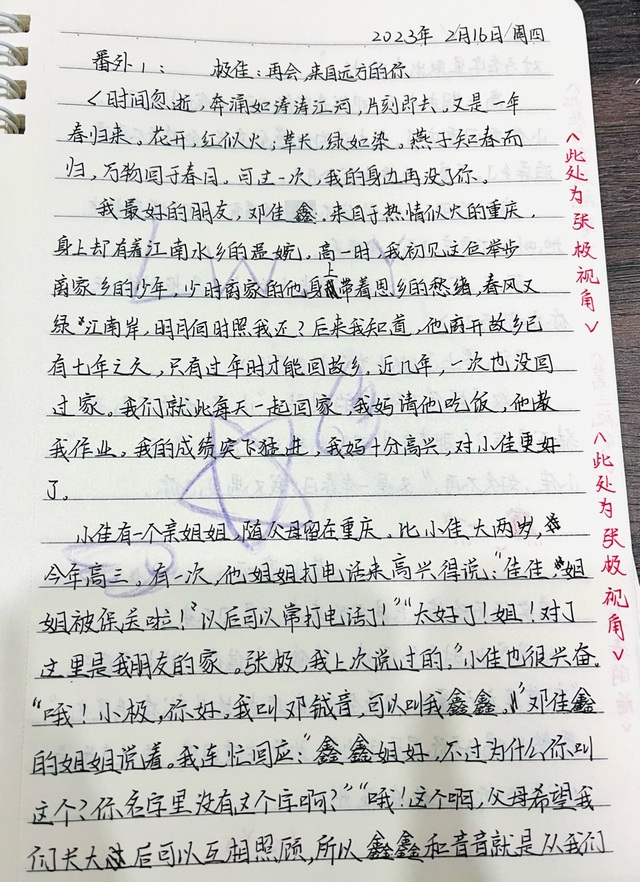 2023年 2月16日/周四
番外1: 极佳:再会,来自远方的你
<时间忽逝,奔涌如涛涛江河,片刻即去。又是一年
春归来。花开,红似火;草长,绿如染。燕子知春而
归,万物回于春日。可过一次,我的身边再没了你。
我最好的朋友,邓佳鑫,来自于热情似火的重庆,
身上却有着江南水乡的温婉。高一时,我初见这位举步
离家乡的少年,少时离家的他身上常着思乡的愁绪,春风又
绿江南岸,明月何时照我还?后来我知道,他离开故乡已
有七年之久,只有过年时才能回故乡。近几年,一次也没回
过家。我们就此每天一起回家,我妈请他吃饭,他教
我作业。我的成绩突飞猛进,我妈十分高兴,对小佳更好
了。
小佳有一个亲姐姐,随父母留在重庆。比小佳大两岁,
今年高三。有一次,他姐姐打电话来高兴得说:"佳佳,姐
姐被保送啦!以后可以常打电话了!""太好了!姐!对了
这里是我朋友的家。张极,我上次说过的,"小佳也很兴奋。
"哦!小极,你好。我叫邓钺音,可以叫我鑫鑫。"邓佳鑫
的姐姐说着。我连忙回应:"鑫鑫姐好,不过为什么你叫
这个?你名字里没有这个字啊?""哦!这个啊,父母希望我
们长大后可以互相照顾,所以鑫鑫和音音就是从我们
<此处为张极视角>
<此处为张极视角>